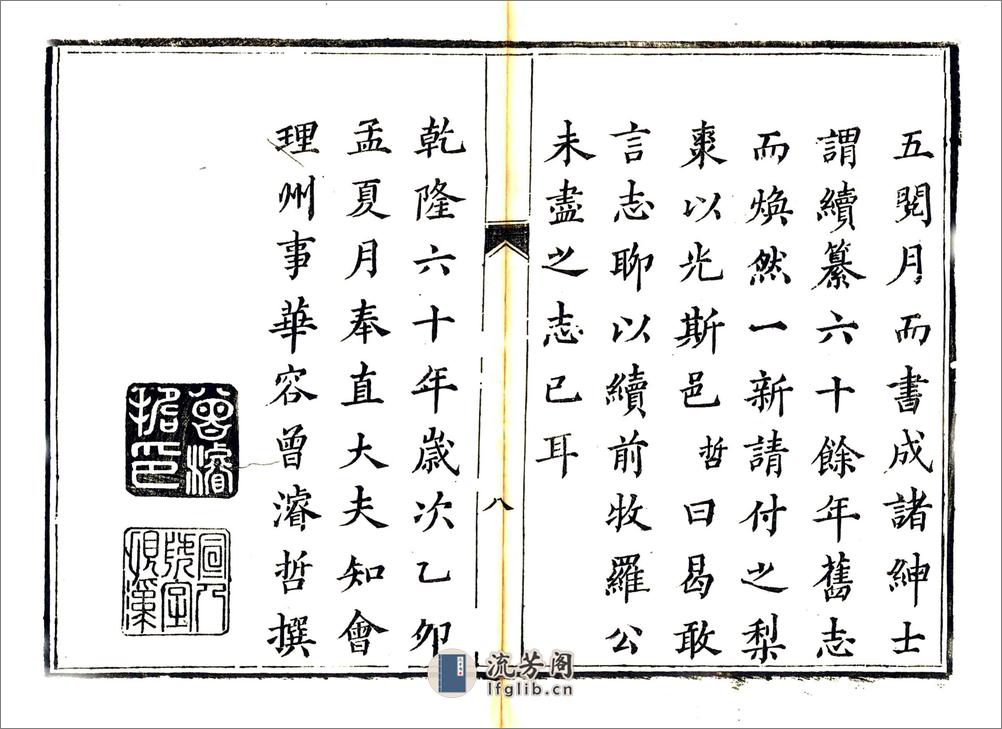 五閱月而書成諸紳士
謂續纂六十餘年舊志
而煥然一新請付之梨
棗以光斯邑哲曰曷敢
言志聊以續前牧羅公
未盡之志已耳
八
乾隆六十年歲次乙卯
孟夏月奉直大夫知會
理州事華容曾濬哲撰
曾濬
哲印
流芳阁
lfglib.cn